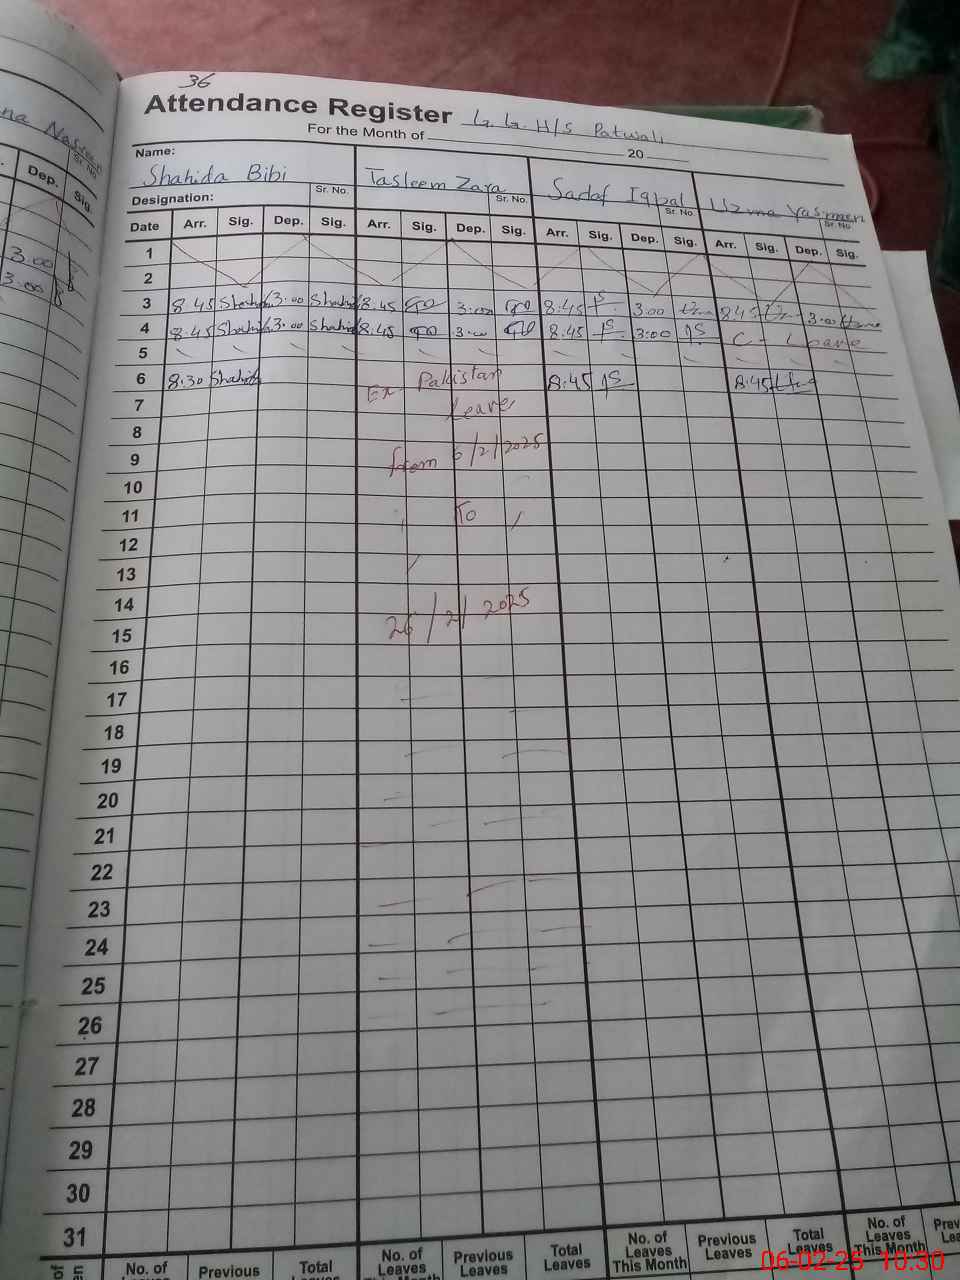 36
Attendance Register G. G. H/S Patwali
For the Month of 20
Name:
Shahida Bibi Tasleem Zara Sadaf Iqbal Uzma Yasmeen
Designation: Sr. No. Sr. No. Sr. No. Sr. No.
Date Arr. Sig. Dep. Sig. Arr. Sig. Dep. Sig. Arr. Sig. Dep. Sig. Arr. Sig. Dep. Sig.
1
2
3 8.45 Shahida 3.00 Shahida 8.45 3.00 8.45 3.00 8.45 3.00
4 8.45 Shahida 3.00 Shahida 8.45 3.00 8.45 3:00 C - Leave
5
6 8.30 Shahida Ex Pakistan 8.45 8.45
7 Leave
8
9 from 6/2/2025
10
11 To
12
13
14
15 26/2/2025
16
17
18
19
20
21
22
23
24
25
26
27
28
29
30
31
No. of Previous Total No. of Leaves Previous Leaves Total Leaves No. of Leaves This Month Previous Leaves Total Leaves No. of Leaves This Month
Dep. Sig.
Sr. No.
3.00
3.00
06-02-25 10:30